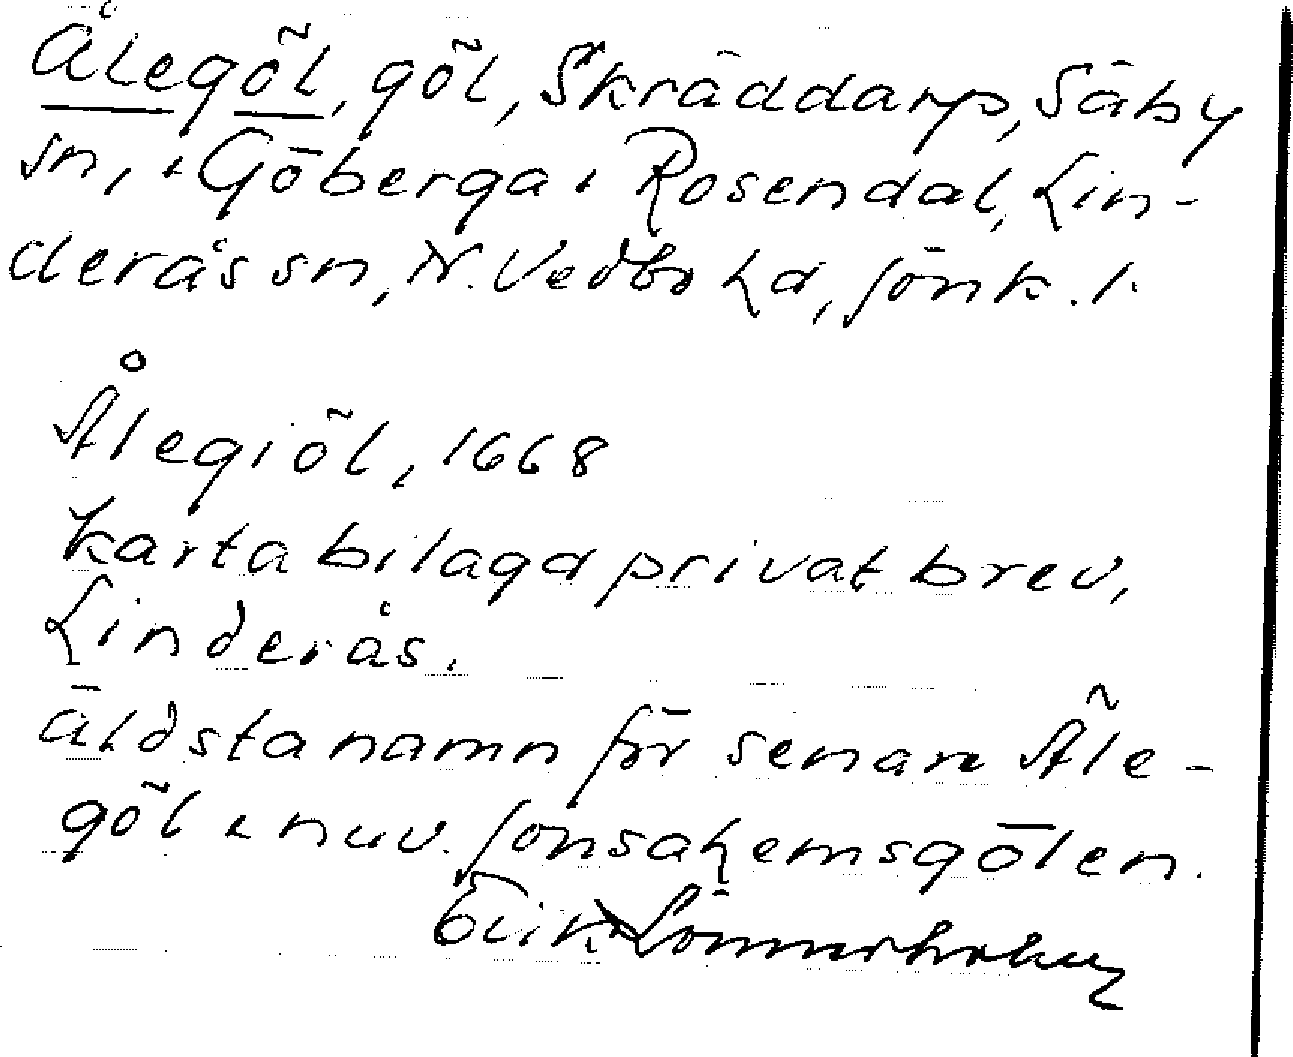 Ålegöl, göl, Skräddarp, Säby
sn, i Göberga i Rosendal, Lin-
derås sn, N. Vedbo hd, Jönk. l.
Ålegiöl, 1668
Karta bilaga privat brev,
Linderås.
äldsta namn för senare Åle-
göl i nuv. Jonsahemsgölen.
Erik